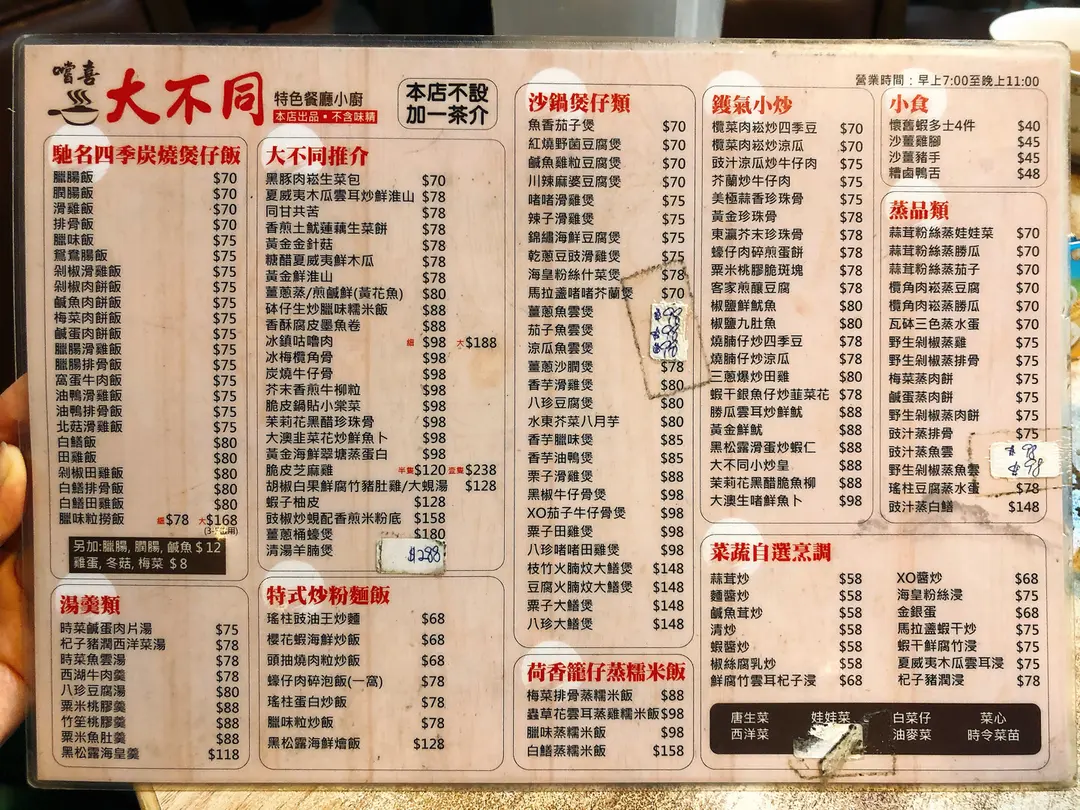 嚐喜
大不同
特色餐廳小廚
本店出品•不含味精
本店不設
加一茶介
營業時間：早上7:00至晚上11:00
馳名四季炭燒煲仔飯
臘腸飯 $70
膶腸飯 $70
滑雞飯 $70
排骨飯 $70
臘味飯 $75
鴛鴦腸飯 $75
剁椒滑雞飯 $75
剁椒肉餅飯 $75
鹹魚肉餅飯 $75
梅菜肉餅飯 $75
鹹蛋肉餅飯 $75
臘腸滑雞飯 $75
臘腸排骨飯 $75
窩蛋牛肉飯 $75
油鴨滑雞飯 $75
油鴨排骨飯 $75
北菇滑雞飯 $75
白鱔飯 $80
田雞飯 $80
剁椒田雞飯 $80
白鱔排骨飯 $80
白鱔田雞飯 $80
臘味粒撈飯 細$78 大$168
另加:臘腸, 膶腸, 鹹魚 $12
雞蛋, 冬菇, 梅菜 $8
湯羹類
時菜鹹蛋肉片湯 $75
杞子豬潤西洋菜湯 $78
時菜魚雲湯 $78
西湖牛肉羹 $78
八珍豆腐湯 $80
粟米桃膠羹 $88
竹笙桃膠羹 $88
粟米魚肚羹 $88
黑松露海皇羹 $118
大不同推介
黑豚肉崧生菜包 $70
夏威夷木瓜雲耳炒鮮淮山 $78
同甘共苦 $78
香煎土魷蓮藕生菜餅 $78
黃金金針菇 $78
糖醋夏威夷鮮木瓜 $78
黃金鮮淮山 $78
薑蔥蒸/煎鹹鮮(黃花魚) $80
砵仔生炒臘味糯米飯 $88
香酥腐皮墨魚卷 $88
冰鎮咕嚕肉 細 $98 大$188
冰梅欖角骨 $98
炭燒牛仔骨 $98
芥末香煎牛柳粒 $98
脆皮鍋貼小棠菜 $98
茉莉花黑醋珍珠骨 $98
大澳韭菜花炒鮮魚卜 $98
黃金海鮮翠塘蒸蛋白 $98
脆皮芝麻雞 半隻$120 壹隻$238
胡椒白果鮮腐竹豬肚雞/大蜆湯 $128
蝦子柚皮 $128
豉椒炒蜆配香煎米粉底 $158
薑蔥桶蠔煲 $180
清湯羊腩煲 $288
特式炒粉麵飯
瑤柱豉油王炒麵 $68
櫻花蝦海鮮炒飯 $68
頭抽燒肉粒炒飯 $68
蠔仔肉碎泡飯(一窩) $78
瑤柱蛋白炒飯 $78
臘味粒炒飯 $78
黑松露海鮮燴飯 $128
沙鍋煲仔類
魚香茄子煲 $70
紅燒野菌豆腐煲 $70
鹹魚雞粒豆腐煲 $70
川辣麻婆豆腐煲 $70
啫啫滑雞煲 $75
辣子滑雞煲 $75
錦繡海鮮豆腐煲 $75
乾蔥豆豉滑雞煲 $75
海皇粉絲什菜煲 $78
馬拉盞啫啫芥蘭煲 $70
薑蔥魚雲煲 $98
茄子魚雲煲 $98
涼瓜魚雲煲 $98
薑蔥沙膶煲 $78
香芋滑雞煲 $80
八珍豆腐煲 $80
水東芥菜八月芋 $80
香芋臘味煲 $85
香芋油鴨煲 $85
栗子滑雞煲 $88
黑椒牛仔骨煲 $98
XO茄子牛仔骨煲 $98
粟子田雞煲 $98
八珍啫啫田雞煲 $98
枝竹火腩炆大鱔煲 $148
豆腐火腩炆大鱔煲 $148
栗子大鱔煲 $148
八珍大鱔煲 $148
荷香籠仔蒸糯米飯
梅菜排骨蒸糯米飯 $88
蟲草花雲耳蒸雞糯米飯$98
臘味蒸糯米飯 $98
白鱔蒸糯米飯 $158
鑊氣小炒
欖菜肉崧炒四季豆 $70
欖菜肉崧炒涼瓜 $70
豉汁涼瓜炒牛仔肉 $75
芥蘭炒牛仔肉 $75
美極蒜香珍珠骨 $75
黃金珍珠骨 $78
東瀛芥末珍珠骨 $78
蠔仔肉碎煎蛋餅 $78
粟米桃膠脆斑塊 $78
客家煎釀豆腐 $78
椒鹽鮮魷魚 $80
椒鹽九肚魚 $80
燒腩仔炒四季豆 $78
燒腩仔炒涼瓜 $78
三蔥爆炒田雞 $80
蝦干銀魚仔炒韮菜花 $78
勝瓜雲耳炒鮮魷 $88
黃金鮮魷 $88
黑松露滑蛋炒蝦仁 $88
大不同小炒皇 $88
茉莉花黑醋脆魚柳 $88
大澳生啫鮮魚卜 $98
小食
懷舊蝦多士4件 $40
沙薑雞腳 $45
沙薑豬手 $45
糟鹵鴨舌 $48
蒸品類
蒜茸粉絲蒸娃娃菜 $70
蒜茸粉絲蒸勝瓜 $70
蒜茸粉絲蒸茄子 $70
欖角肉崧蒸豆腐 $70
欖角肉崧蒸勝瓜 $70
瓦砵三色蒸水蛋 $70
野生剁椒蒸雞 $75
野生剁椒蒸排骨 $75
梅菜蒸肉餅 $75
鹹蛋蒸肉餅 $75
野生剁椒蒸肉餅 $75
豉汁蒸排骨 $75
豉汁蒸魚雲 $98
野生剁椒蒸魚雲 $98
瑤柱豆腐蒸水蛋 $78
豉汁蒸白鱔 $148
菜蔬自選烹調
蒜茸炒 $58 XO醬炒 $68
麵醬炒 $58 海皇粉絲浸 $75
鹹魚茸炒 $58 金銀蛋 $68
清炒 $58 馬拉盞蝦干炒 $75
蝦醬炒 $58 蝦干鮮腐竹浸 $75
椒絲腐乳炒 $58 夏威夷木瓜雲耳浸 $75
鮮腐竹雲耳杞子浸 $68 杞子豬潤浸 $78
唐生菜 娃娃菜 白菜仔 菜心
西洋菜 油麥菜 時令菜苗